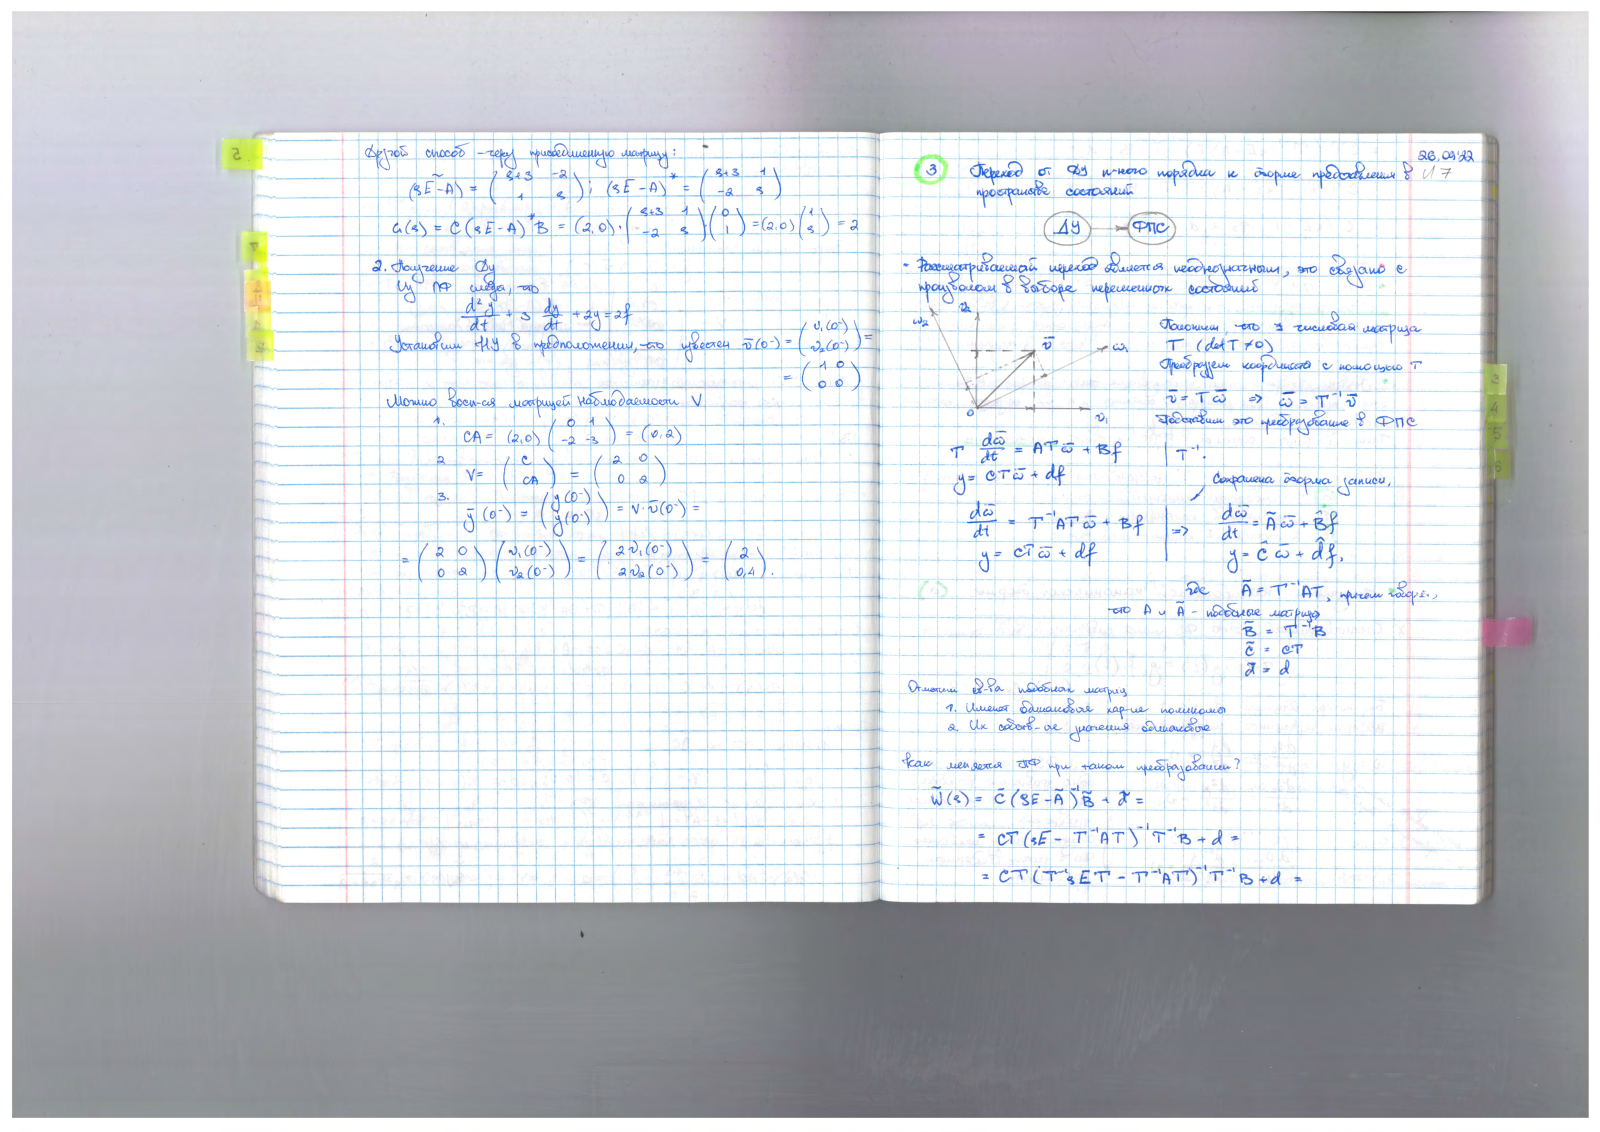 Другой способ – через присоединенную матрицу:
(sE-A)~ = ( s+3 -2 ; 1 s ) ; (sE-A)* = ( s+3 1 ; -2 s )
G(s) = C(sE-A)*B = (2,0)·( s+3 1 ; -2 s )( 0 ; 1 ) = (2,0)( 1 ; s ) = 2
2. Получение ДУ
Из ПФ следа, что
d²y/dt + 3 dy/dt + 2y = 2f
Установим НУ в предположении, что известен v̄(0⁻) = ( v₁(0⁻) ; v₂(0⁻) ) =
= ( 1 0 ; 0 0 )
Можно восп-ся матрицей наблюдаемости V
1.
CA = (2,0) ( 0 1 ; -2 -3 ) = (0,2)
2
V = ( C ; CA ) = ( 2 0 ; 0 2 )
3.
ȳ(0⁻) = ( y(0⁻) ; y(0⁻) ) = V·v̄(0⁻) =
= ( 2 0 ; 0 2 ) ( v₁(0⁻) ; v₂(0⁻) ) = ( 2v₁(0⁻) ; 2v₂(0⁻) ) = ( 2 ; 0,4 ).
26.09.22
3 Переход от ДУ n-ного порядка к форме представления в
пространстве состояний
ДУ → ФПС
- Рассматриваемый переход является неоднозначным, это связано с
произволом в выборе переменных состояний
ω₂ v₂ v̄ ω₁ 0 v₁
Положим, что ∃ числовая матрица
T (det T ≠ 0)
Преобразуем координаты с помощью T
v̄ = Tω̄ ⇒ ω̄ = T⁻¹v̄
Подставим это преобразование в ФПС
T dω̄/dt = ATω̄ + Bf | T⁻¹·
y = CTω̄ + df
Сохранена форма записи,
dω̄/dt = T⁻¹ATω̄ + Bf | ⇒ dω̄/dt = Ãω̄ + B̂f
y = CTω̄ + df y = Ĉω̄ + d̂f,
где Ã = T⁻¹AT, причем говор.,
что A и Ã – подобные матрицы
B̃ = T⁻¹B
C̃ = CT
d̃ = d
Отметим св-ва подобных матриц
1. Имеют одинаковые хар-ие полиномы
2. Их собств-ые значения одинаковые
Как меняется ПФ при таком преобразовании?
W̃(s) = C̃(sE-Ã)⁻¹B̃ + d̃ =
= CT(sE - T⁻¹AT)⁻¹T⁻¹B + d =
= CT(T⁻¹sET - T⁻¹AT)⁻¹T⁻¹B + d =